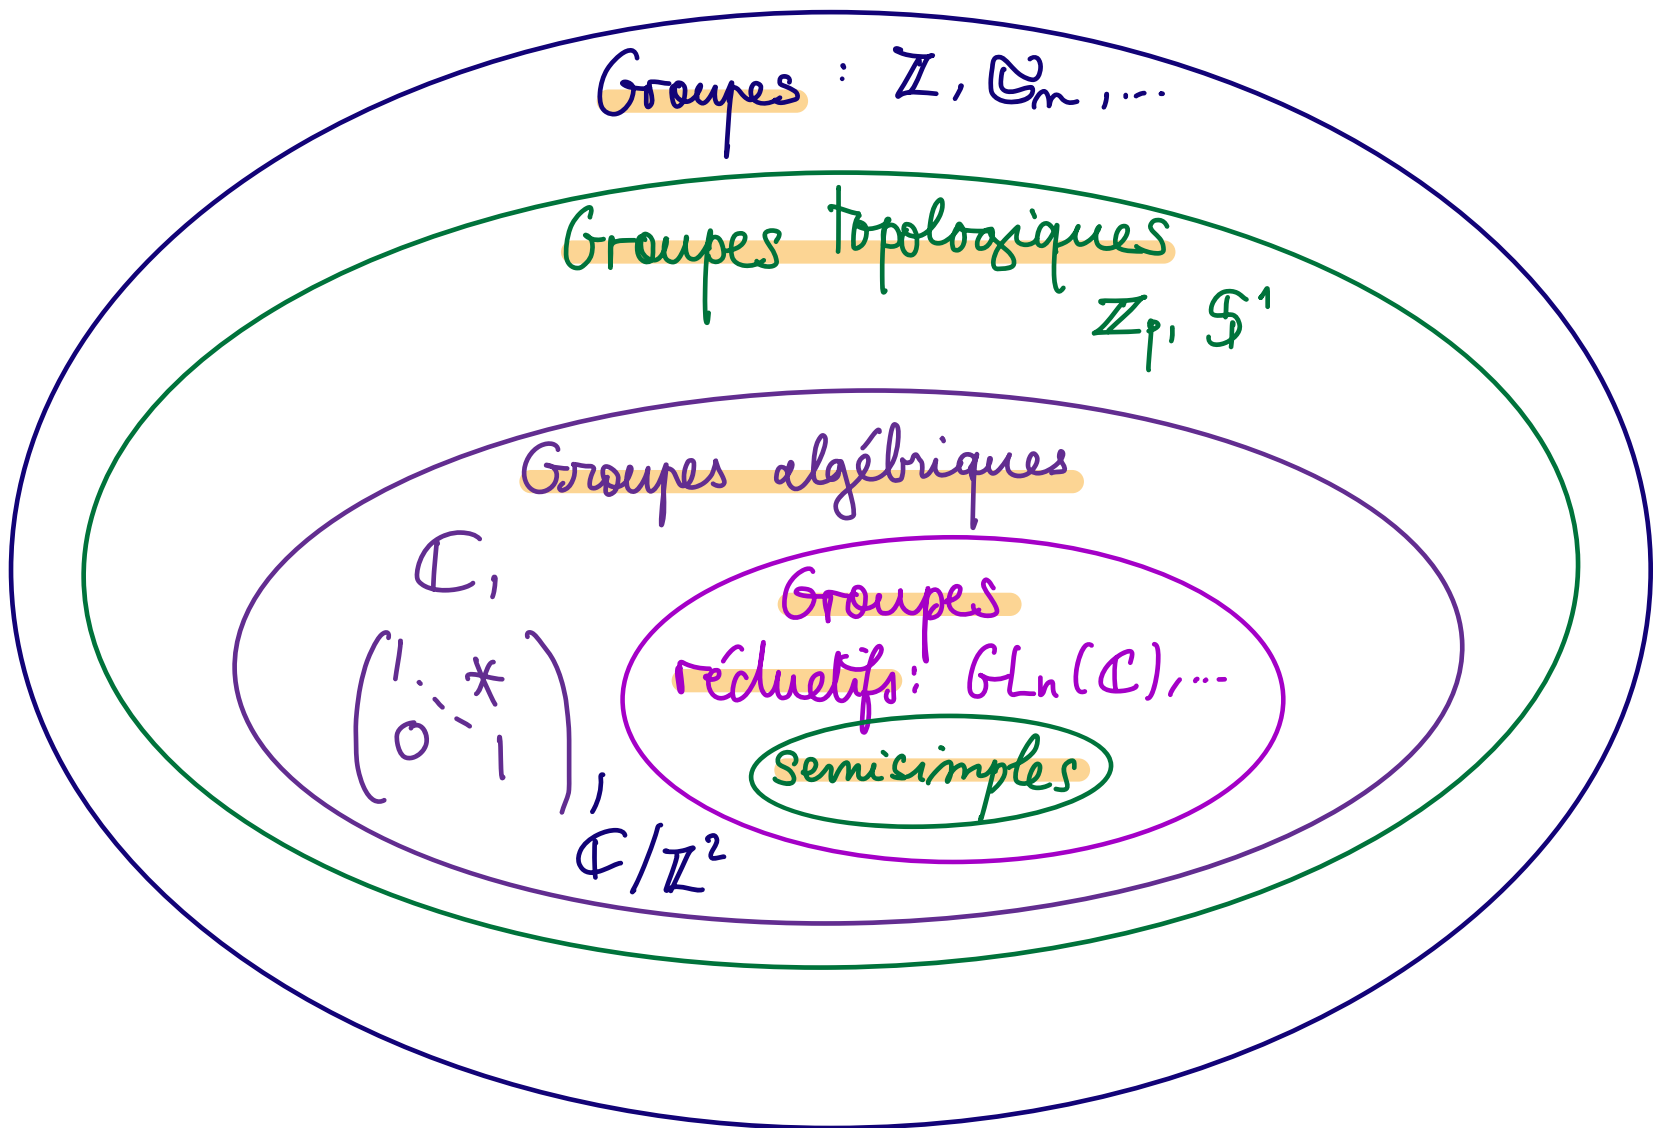 Groupes : ℤ, 𝔖ₙ, ...
Groupes topologiques
ℤₚ, 𝕊¹
Groupes algébriques
ℂ,
(1 ⋱ * 0 1),
ℂ/ℤ²
Groupes
réductifs: GLn(ℂ), ...
semisimples